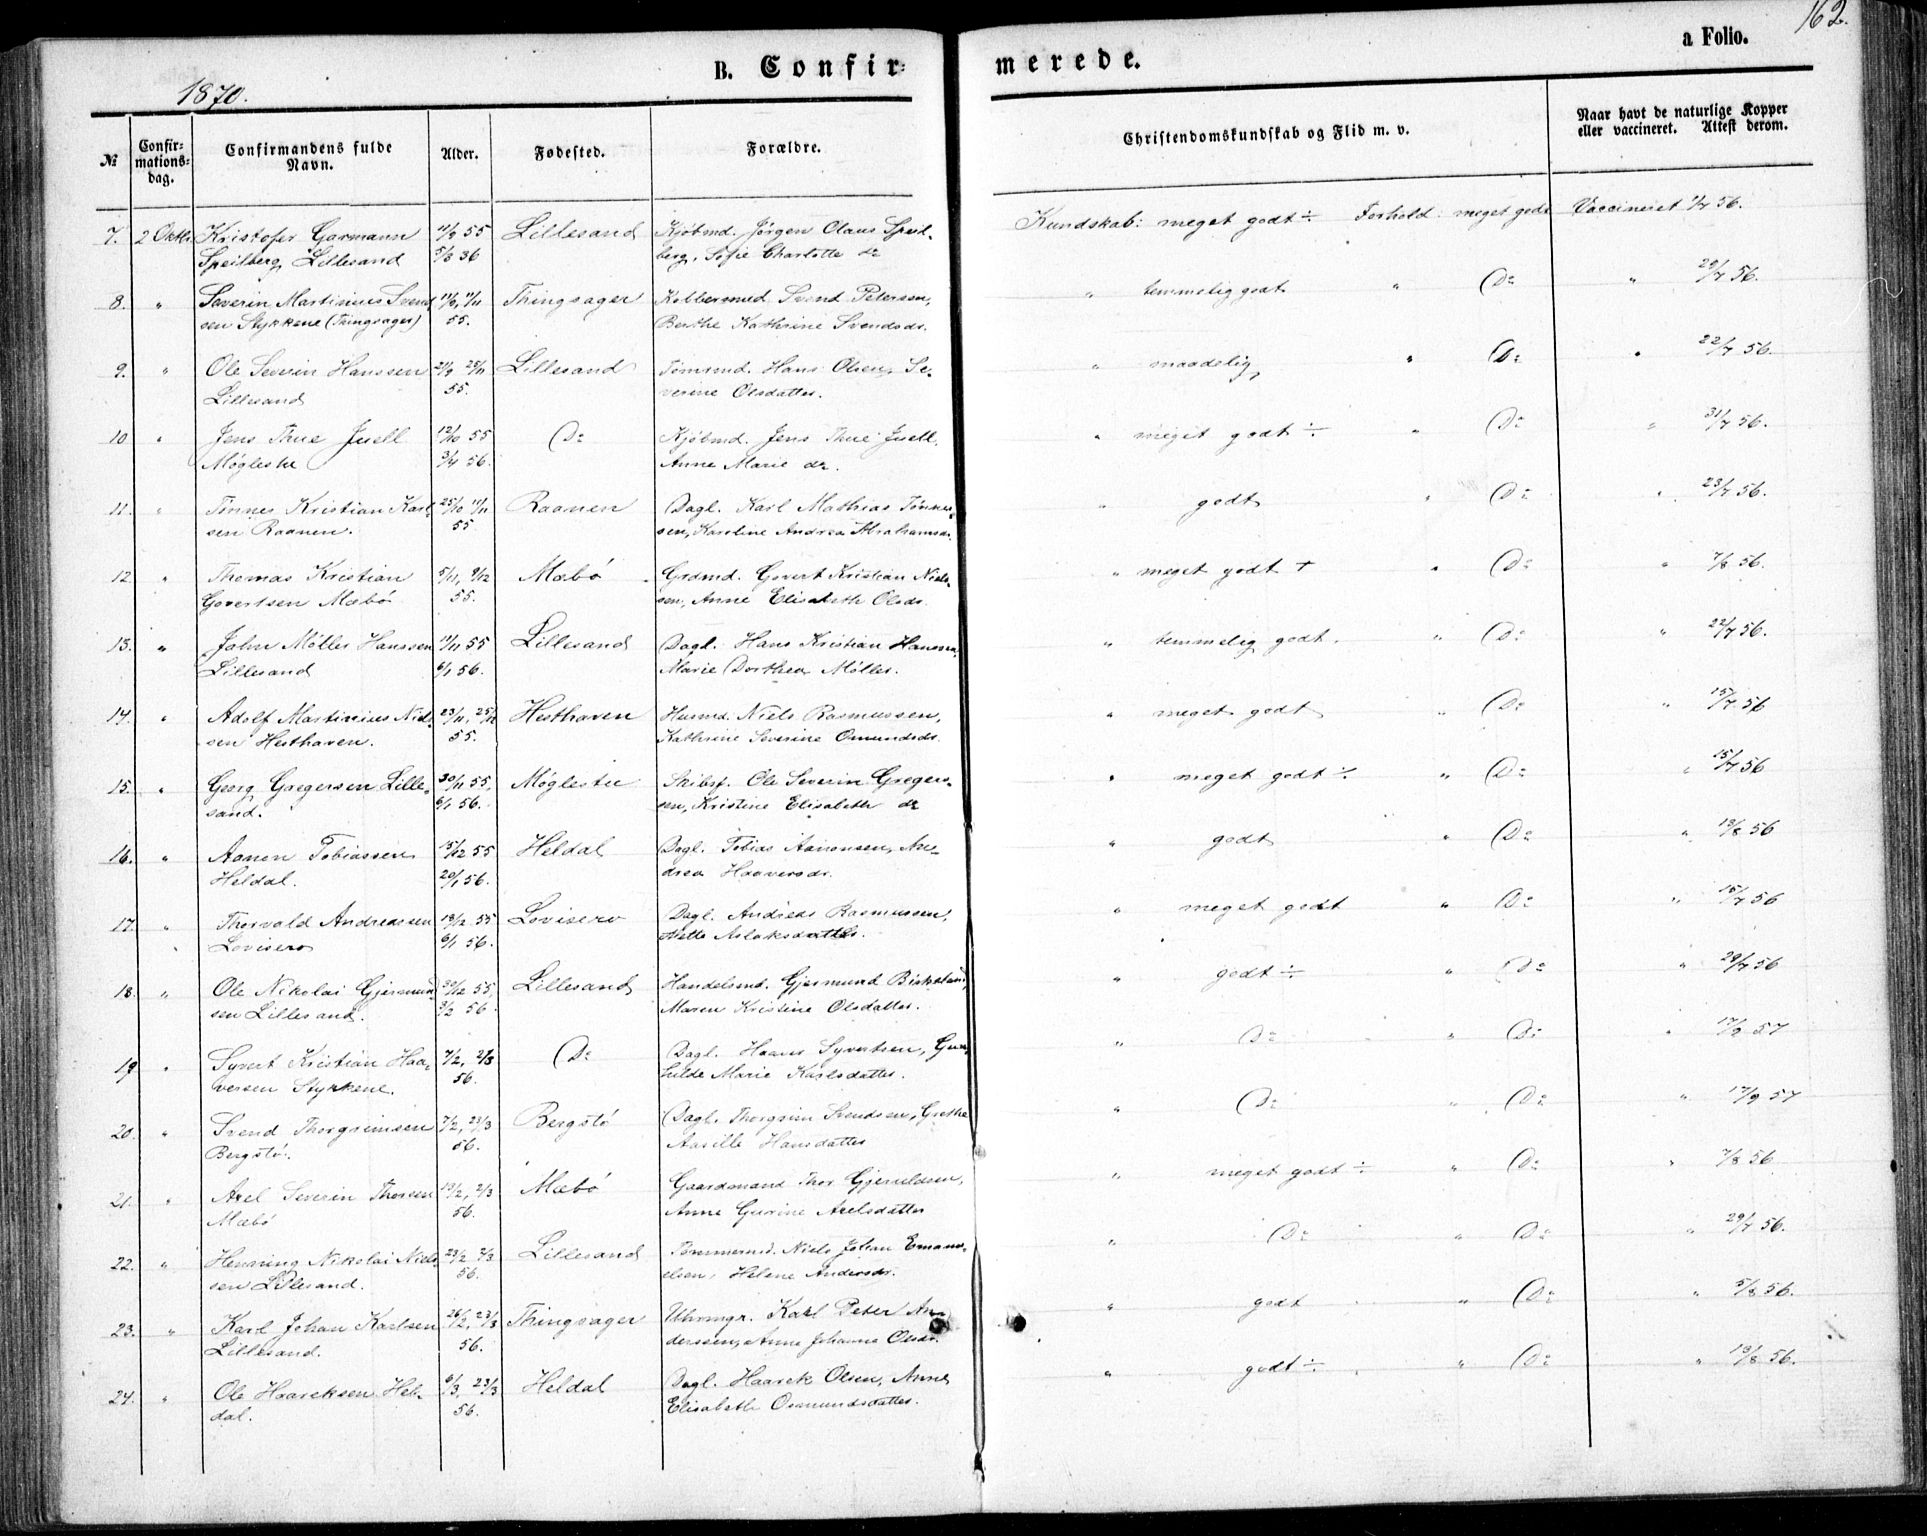 162.
B. Confir=
merede.
a Folio.
1870.
№
Confir-
mations-
dag.
Confirmandens fulde
Navn.
Alder.
Fødested.
Forældre.
Christendomskundskab og Flid m. v.
Naar havt de naturlige Kopper
eller vaccineret. Attest derom.
7. 2 Oktbr. Kristofer Garmann 11/9 55 Lillesand Kjøbmd. Jørgen Claus Speil- Kundskab: meget godt ÷ Forhold: meget godt Vaccineret 1/7 56.
Speilberg Lillesand 5/3 56 berg, Sofie Charlotte do
8. " Severin Martinius Svend- 11/9, 11/11 Thingsager Kobbersmed Svend Petersen, " temmelig godt " Do " 29/7 56.
sen Stykkene (Thingsager) 55. Berthe Kathrine Svendsdr.
9. " Ole Severin Hanssen 21/9 25/11 Lillesand Tømrmd. Hans Olsen, Se- " maadelig " Do " 22/7 56.
Lillesand 55. verine Olsdatter.
10 " Jens Thue Juell 12/10 55 Do Kjøbmd. Jens Thue Juell, " meget godt ÷ " Do " 31/7 56.
Møglestu 3/4 56. Anne Marie do.
11. " Tønnes Kristian Karl- 25/10 11/11 Raanen Dagl. Karl Mathias Tønnes- " godt " Do " 23/7 56.
sen Raanen. 55 sen, Karoline Andrea Abrahamsdr.
12 " Thomas Kristian 5/11, 9/12 Mæbø Grdmd. Govert Kristian Niels- " meget godt + " Do " 7/8 56.
Govertsen Mæbø 55. sen, Anne Elisabeth Olsdr.
13. " John Møller Hanssen 11/11 55 Lillesand Dagl. Hans Kristian Hanssen, " temmelig godt. " Do " 22/7 56.
Lillesand 6/1 56. Marie Dorthea Møller.
14. " Adolf Martinius Niel- 23/11, 25/12 Hesthaven Husmd. Niels Rasmussen, " meget godt " Do " 15/7 56
sen Hesthaven. 55. Kathrine Severine Omundsdr.
15. " Georg Gregersen Lille- 30/11 55, Møglestu Skibsf. Ole Severin Gregers- " meget godt ÷ " Do " 15/7 56
sand. 6/1 56. sen, Kristine Elisabeth do
16. " Aanon Tobiassen 15/12 55 Heldal Dagl. Tobias Aanonsen, An- " godt " Do " 13/8 56
Heldal. 20/1 56. drea Haaversdr.
17. " Thorvald Andreassen 18/12 55 Lovisero Dagl. Andreas Rasmussen, " meget godt " Do " 15/7 56
Lovisero 6/1 56. Mette Aslaksdatter.
18. " Ole Nikolai Gjermund- 30/12 55, Lillesand Handelsmd. Gjermund Birkeland, " godt ÷ " Do " 29/7 56
sen Lillesand. 3/2 56. Maren Kristine Olsdatter.
19 " Syvert Kristian Haa- 7/2, 2/3 Do Dagl. Haaver Syvertsen, Gun- " Do " Do " 17/9 57
versen Stykkene. 56. hilde Marie Karlsdatter.
20. " Svend Thorgrimsen 7/2, 23/3 Bergstø Dagl. Thorgrim Svendsen, Grethe " Do " Do " 17/9 57
Bergstø. 56. Aasille Hansdatter
21. " Axel Severin Thorsen 13/2, 2/3 Mæbø Gaardmand Thor Gjeruldsen, " meget godt ÷ " Do " 7/8 56
Mæbø 56. Anne Gurine Axelsdatter
22. " Henning Nikolai Niels- 23/2 2/3 Lillesand Tømmermd. Niels Johan Emanu- " Do " Do " 29/7 56.
sen Lillesand. 56. elsen, Helene Andersdr.
23. " Karl Johan Karlsen 26/2, 23/3 Thingsager Uhrmgr. Karl Peter An- " godt " Do " 5/8 56.
Lillesand. 56. derssen, Anne Johanne Olsdr.
24. " Ole Haareksen Hel- 6/3, 23/3 Heldal Dagl. Haarek Olsen, Anne " godt ÷ " Do " 13/8 56.
dal. 56. Elisabeth Osmundsdatter.